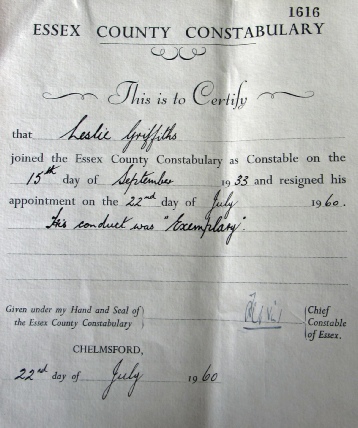 1616
ESSEX COUNTY CONSTABULARY
This is to Certify
that Leslie Griffiths
joined the Essex County Constabulary as Constable on the
15th day of September 1933 and resigned his
appointment on the 22nd day of July 1960.
His conduct was "Exemplary".
Given under my Hand and Seal of
the Essex County Constabulary
Chief
Constable
of Essex.
CHELMSFORD,
22nd day of July 1960